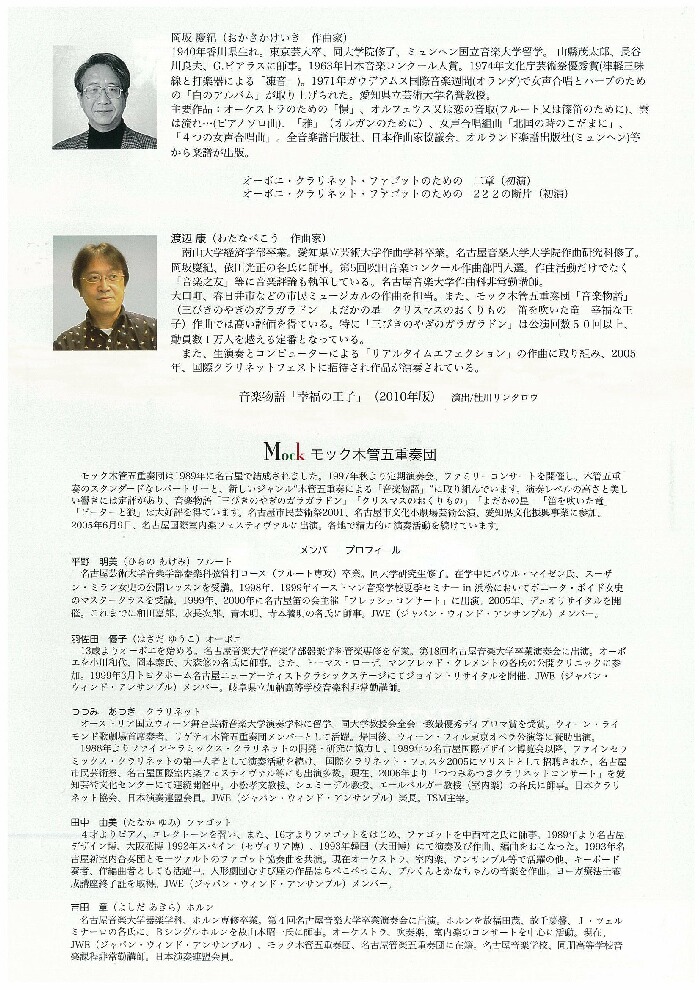 岡坂 慶紀（おかさかけいき　作曲家）
1940年香川県生れ。東京芸大卒、同大学院修了、ミュンヘン国立音楽大学留学。山縣茂太郎、長谷
川良夫、G.ビアラスに師事。1963年日本音楽コンクール入賞。1974年文化庁芸術祭優秀賞(津軽三味
線と打楽器による「凍音」)。1971年ガウデアムス国際音楽週間(オランダ)で女声合唱とハープのため
の「白のアルバム」が取り上げられた。愛知県立芸術大学名誉教授。
主要作品：オーケストラのための「慢」、オルフェウス又は恋の音取(フルート又は篠笛のために)、奏
は流れ…(ピアノソロ曲)、「雅」（オルガンのために）、女声合唱組曲「北国の時のこだまに」、
「４つの女声合唱曲」。全音楽譜出版社、日本作曲家協議会、オルランド楽譜出版社(ミュンヘン)等
から楽譜が出版。
オーボエ・クラリネット・ファゴットのための　二章（初演）
オーボエ・クラリネット・ファゴットのための　２２２の断片（初演）
渡辺 康（わたなべこう　作曲家）
南山大学経済学部卒業。愛知県立芸術大学作曲学科卒業。名古屋音楽大学大学院作曲研究科修了。
岡坂慶紀、依田光正の各氏に師事。第5回吹田音楽コンクール作曲部門入選。作曲活動だけでなく
「音楽之友」等に音楽評論も執筆している。名古屋音楽大学作曲科非常勤講師。
大口町、春日井市などの市民ミュージカルの作曲を担当。また、モック木管五重奏団「音楽物語」
（三びきのやぎのガラガラドン　よだかの星　クリスマスのおくりもの　笛を吹いた竜　幸福な王
子）作曲では高い評価を得ている。特に「三びきのやぎのガラガラドン」は公演回数５０回以上、
動員数１万人を越える定番となっている。
また、生演奏とコンピューターによる「リアルタイムエフェクション」の作曲に取り組み、2005
年、国際クラリネットフェストに招待され作品が演奏されている。
音楽物語「幸福の王子」（2010年版）　演出/社川リンタロウ
Mock モック木管五重奏団
モック木管五重奏団は1989年に名古屋で結成されました。1997年秋より定期演奏会、ファミリーコンサートを開催し、木管五重
奏のスタンダードなレパートリーと、新しいジャンル"木管五重奏による「音楽物語」"に取り組んでいます。演奏レベルの高さと美し
い響きには定評があり、音楽物語「三びきのやぎのガラガラドン」「クリスマスのおくりもの」「よだかの星」「笛を吹いた竜」
「ピーターと狼」は大好評を得ています。名古屋市民芸術祭2001、名古屋市文化小劇場芸術公演、愛知県文化振興事業に参加。
2005年6月9日、名古屋国際室内楽フェスティヴァルに出演。各地で精力的に演奏活動を続けています。
メンバー　プロフィール
平野　明美（ひらの あけみ）フルート
名古屋芸術大学音楽学部器楽科弦管打コース（フルート専攻）卒業。同大学研究生修了。在学中にパウル・マイゼン氏、スーザ
ン・ミラン女史の公開レッスンを受講。1998年、1999年イーストマン音楽学校夏季セミナー in 浜松においてボニータ・ボイド女史
のマスタークラスを受講。1999年、2000年に名古屋笛の会主催「フレッシュコンサート」に出演。2005年、デュオリサイタルを開
催。これまでに和田富郎、永長次郎、青木明、寺本義明の各氏に師事。JWE（ジャパン・ウィンド・アンサンブル）メンバー。
羽佐田　優子（はさだ ゆうこ）オーボエ
13歳よりオーボエを始める。名古屋音楽大学音楽学部器楽学科管楽専修を卒業。第18回名古屋音楽大学卒業演奏会に出演。オーボ
エを小川和代、岡本泰氏、大森悠の各氏に師事。また、トーマス・ローザ、マンフレッド・クレメントの各氏の公開クリニックに参
加。1999年3月トヨタホーム名古屋ニューアーティストクラシックステージにてジョイント・リサイタルを開催。JWE（ジャパン・
ウィンド・アンサンブル）メンバー。岐阜県立加納高等学校音楽科非常勤講師。
つつみ　あつき　クラリネット
オーストリア国立ウィーン舞台芸術音楽大学演奏学科に留学。同大学教授会全会一致最優秀ディプロマ賞を受賞。ウィーン・ライ
モンド歌劇場首席奏者、リゲティ木管五重奏団メンバーとして活躍。帰国後、ウィーン・フィル東京オペラ公演等に賛助出演。
1988年よりファインセラミックス・クラリネットの開発・研究に協力し、1989年の名古屋国際デザイン博覧会以降、ファインセラ
ミックス・クラリネットの第一人者として演奏活動を続け、国際クラリネット・フェスタ2005にソリストとして招聘された。名古屋
市民芸術祭、名古屋国際室内楽フェスティヴァル等にも出演多数。現在、2006年より「つつみあつきクラリネットコンサート」を愛
知芸術文化センターにて連続開催中。小松孝文教授、シュミードル教授、エールベルガー教授（室内楽）の各氏に師事。日本クラリ
ネット協会、日本演奏連盟会員。JWE（ジャパン・ウィンド・アンサンブル）楽長。TSM主宰。
田中　由美（たなか ゆみ）ファゴット
４才よりピアノ、エレクトーンを習い、また、16才よりファゴットをはじめ、ファゴットを中西和之氏に師事。1989年より名古屋
デザイン博、大阪花博 1992年スペイン（セヴィリア博）、1993年韓国（大田博）にて演奏及び作曲、編曲をおこなった。1993年名
古屋新室内合奏団とモーツァルトのファゴット協奏曲を共演。現在オーケストラ、室内楽、アンサンブル等で活躍の他、キーボード
奏者、作編曲者としても活躍中。人形劇団むすび座の作品はらぺこペっこん、ブルくんとかなちゃんの音楽を作曲。ヨーガ療法士養
成講座終了証を取得。JWE（ジャパン・ウィンド・アンサンブル）メンバー。
吉田　章（よしだ あきら）ホルン
名古屋音楽大学器楽学科、ホルン専修卒業。第４回名古屋音楽大学卒業演奏会に出演。ホルンを故福田茂、故千葉馨、Ｊ・ツェル
ミナーロの各氏に、Ｂシングルホルンを故山本昭一氏に師事。オーケストラ、吹奏楽、室内楽のコンサートを中心に活動。現在、
JWE（ジャパン・ウィンド・アンサンブル）、モック木管五重奏団、名古屋管楽五重奏団に在籍。名古屋音楽学校、同朋高等学校音
楽課程非常勤講師。日本演奏連盟会員。